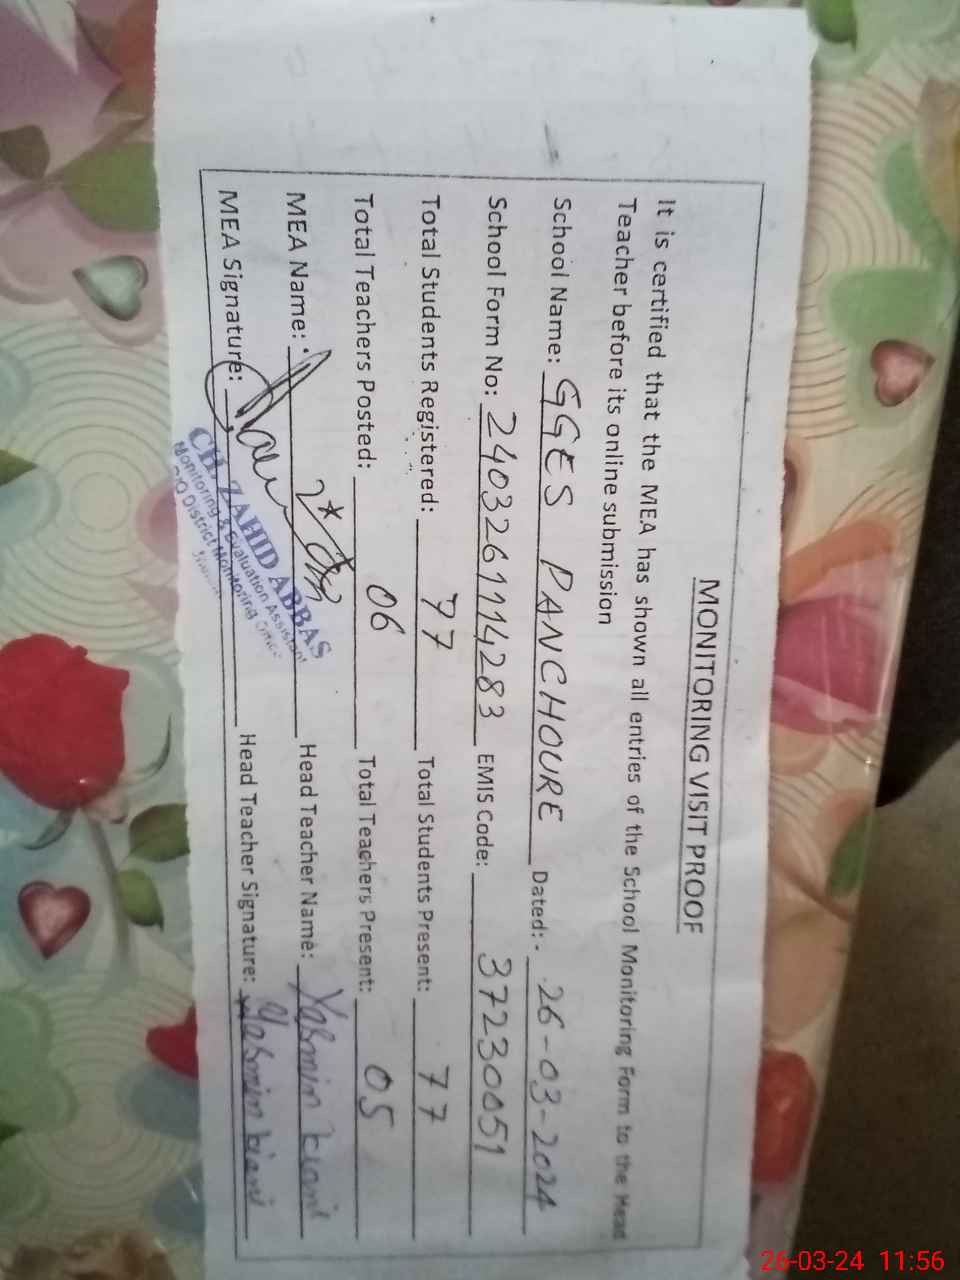 MONITORING VISIT PROOF
It is certified that the MEA has shown all entries of the School Monitoring Form to the Head
Teacher before its online submission
School Name: GGES PANCHOURE Dated:- 26-03-2024
School Form No: 2403261114283 EMIS Code: 37230051
Total Students Registered: 77 Total Students Present: 77
Total Teachers Posted: 06 Total Teachers Present: 05
MEA Name: Head Teacher Name: Yasmin kiani
MEA Signature: Head Teacher Signature: Yasmin kiani
CH. ZAHID ABBAS
Monitoring & Evaluation Assistant
O/O District Monitoring Office
26-03-24 11:56